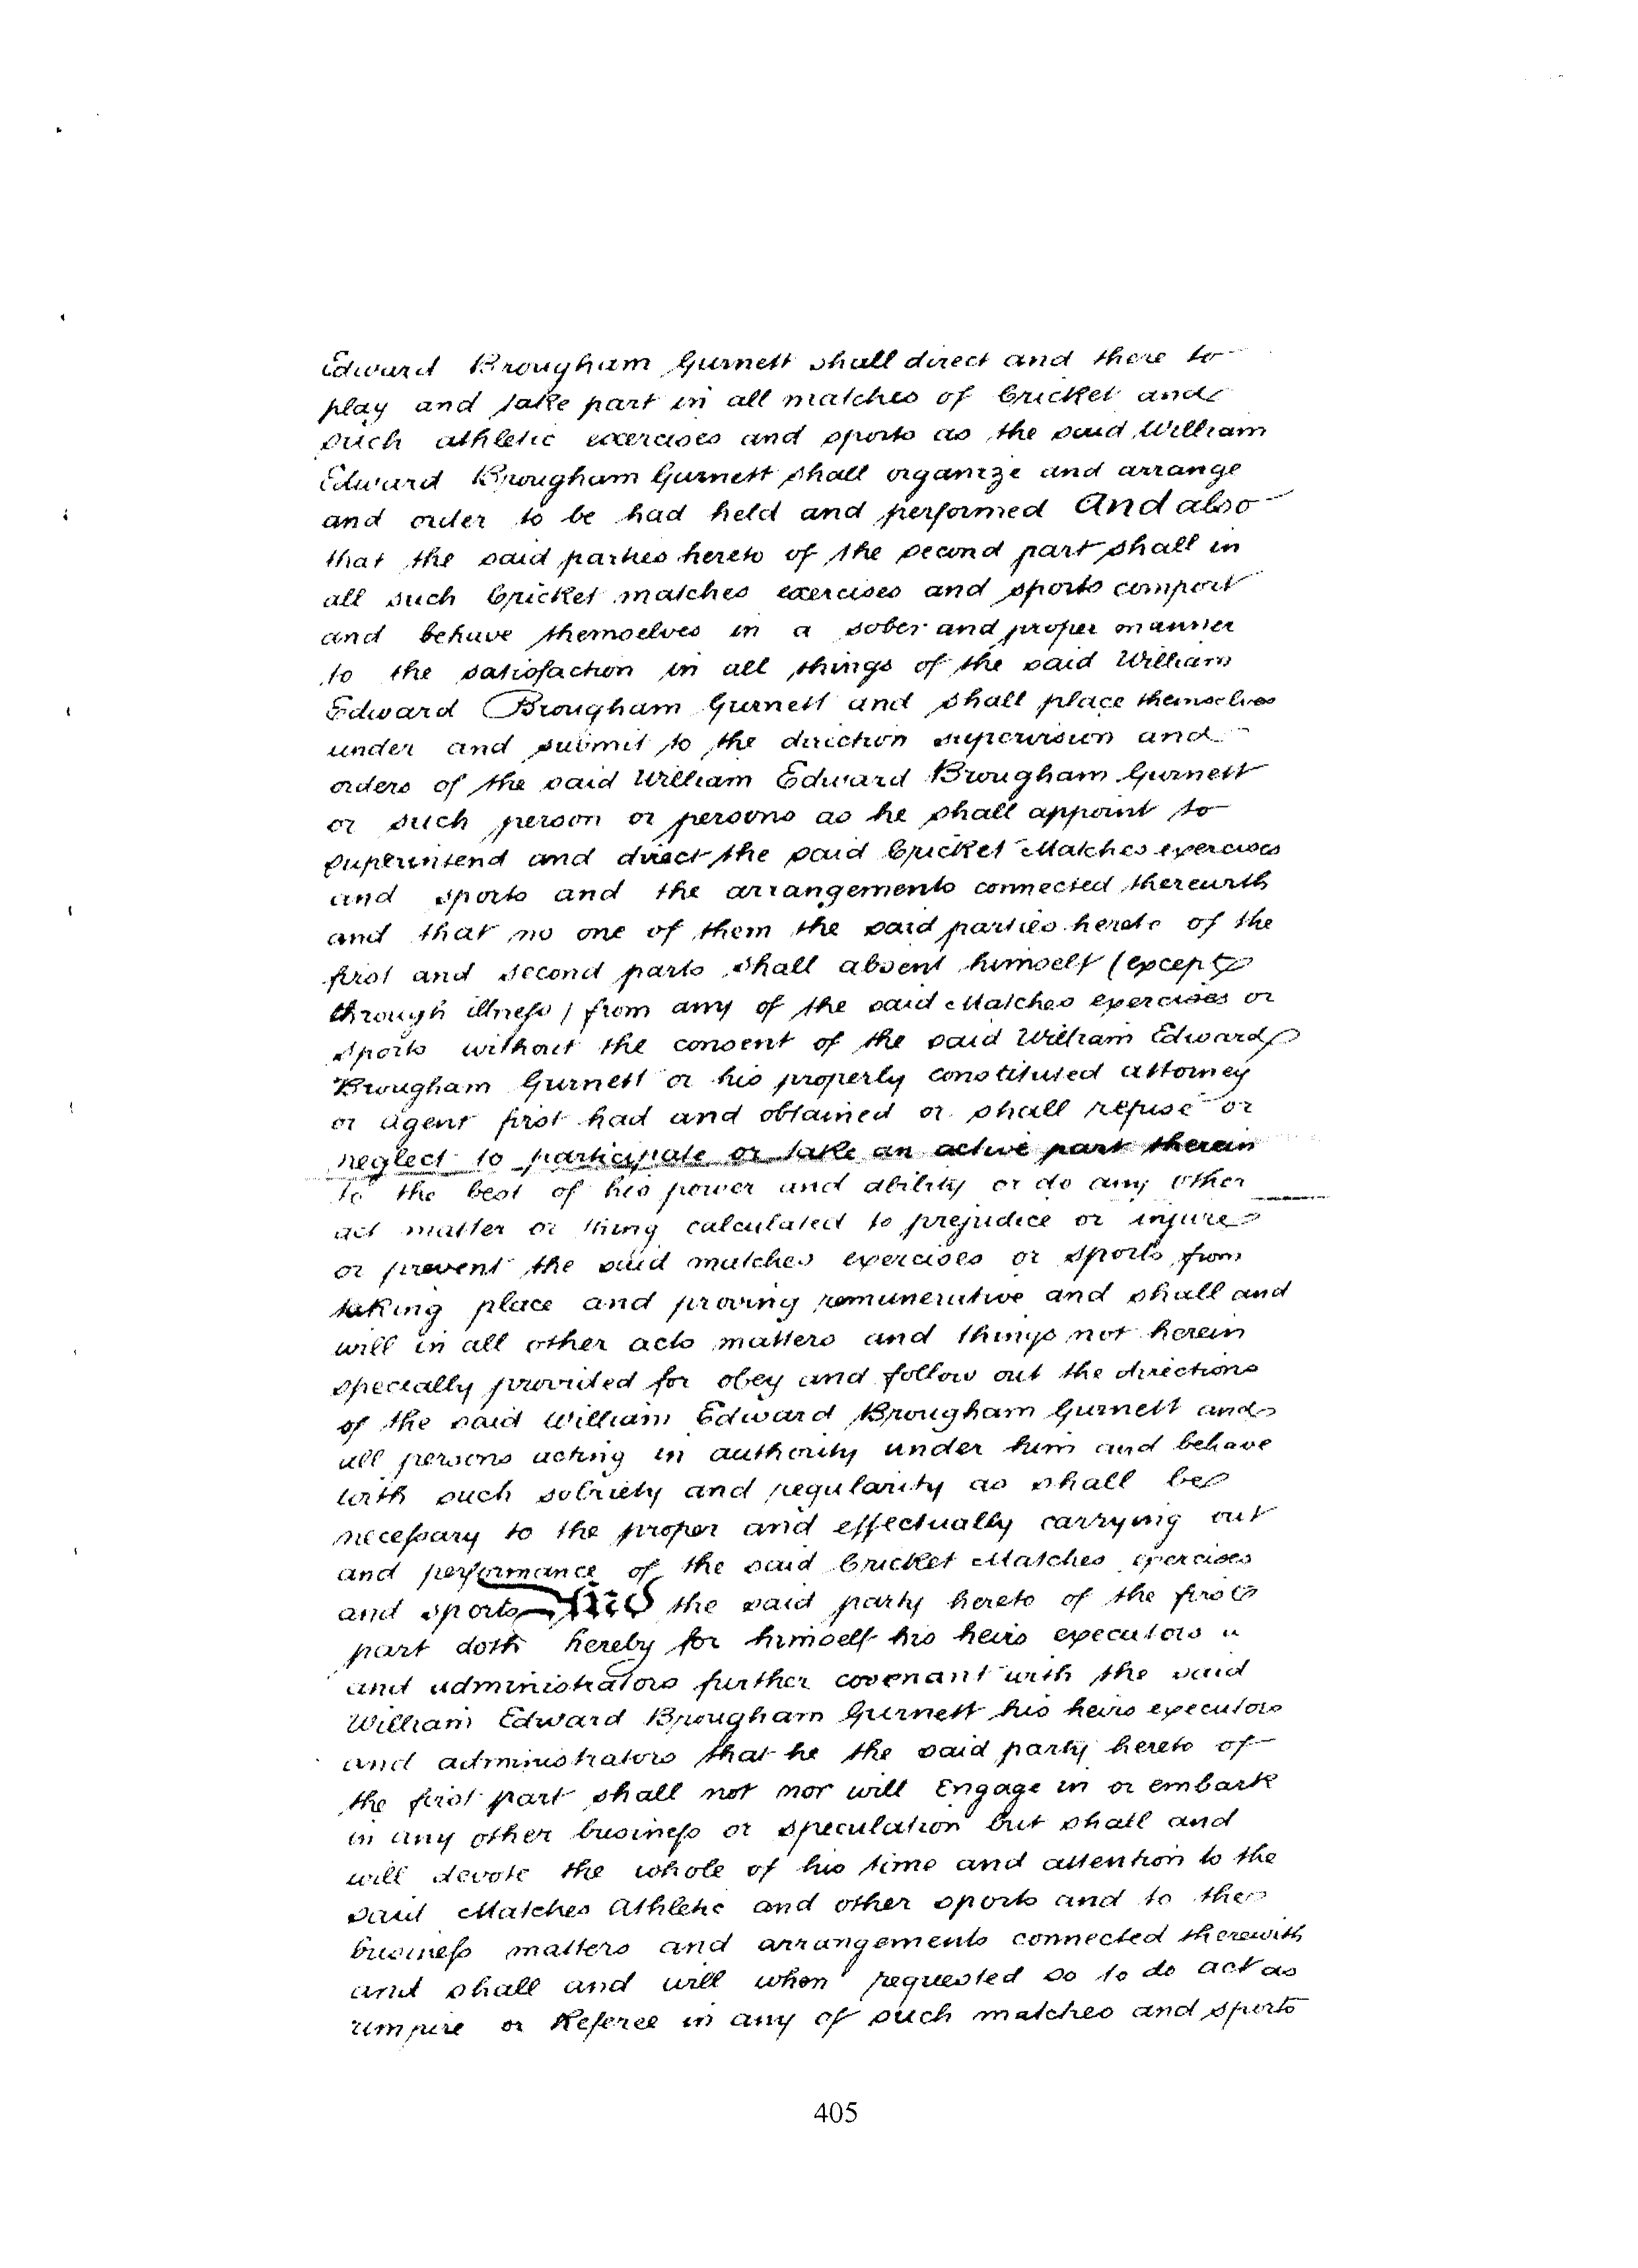 Edward Brougham Gurnett shall direct and there to
play and take part in all matches of Cricket and
such athletic exercises and sports as the said William
Edward Brougham Gurnett shall organize and arrange
and order to be had held and performed And also
that the said parties hereto of the second part shall in
all such Cricket matches exercises and sports comport
and behave themselves in a sober and proper manner
to the satisfaction in all things of the said William
Edward Brougham Gurnett and shall place themselves
under and submit to the direction supervision and
orders of the said William Edward Brougham Gurnett
or such person or persons as he shall appoint to
superintend and direct the said Cricket Matches exercises
and sports and the arrangements connected therewith
and that no one of them the said parties hereto of the
first and second parts shall absent himself (except
through illness) from any of the said Matches exercises or
sports without the consent of the said William Edward
Brougham Gurnett or his properly constituted attorney
or agent first had and obtained or shall refuse or
neglect to participate or take an active part therein
to the best of his power and ability or do any other
act matter or thing calculated to prejudice or injure
or prevent the said matches exercises or sports from
taking place and proving remunerative and shall and
will in all other acts matters and things not herein
specially provided for obey and follow out the directions
of the said William Edward Brougham Gurnett and
all persons acting in authority under him and behave
with such sobriety and regularity as shall be
necessary to the proper and effectually carrying out
and performance of the said Cricket Matches exercises
and sports And the said party hereto of the first
part doth hereby for himself his heirs executors
and administrators further covenant with the said
William Edward Brougham Gurnett his heirs executors
and administrators that he the said party hereto of
the first part shall not nor will Engage in or embark
in any other business or speculation but shall and
will devote the whole of his time and attention to the
said Matches Athletic and other sports and to the
business matters and arrangements connected therewith
and shall and will when requested so to do act as
umpire or Referee in any of such matches and sports
405